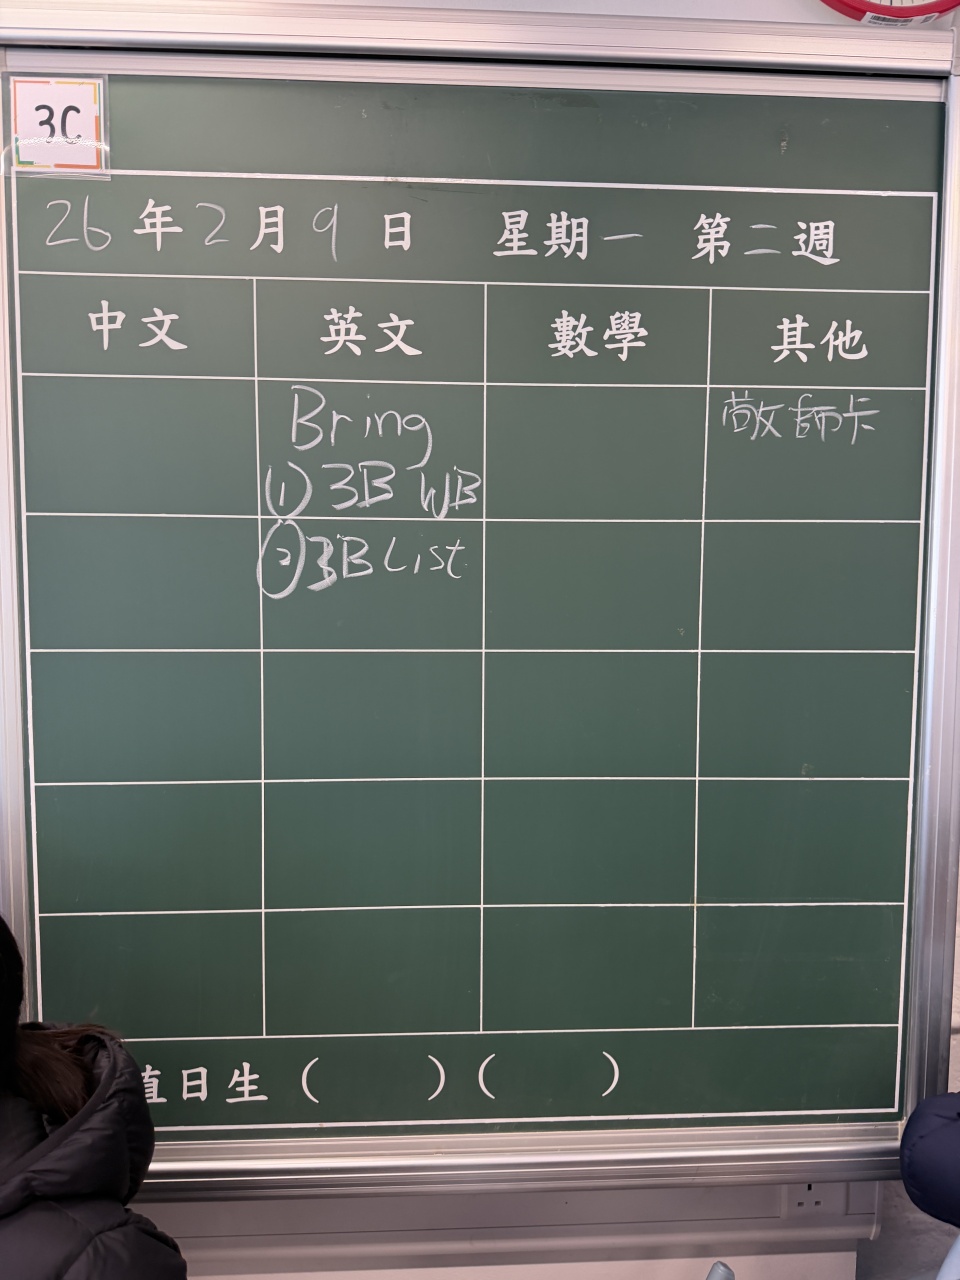 3C
26年2月9日 星期一 第二週
中文 英文 數學 其他
Bring 敬師卡
(1) 3B WB
(2) 3B List
值日生 ( ) ( )